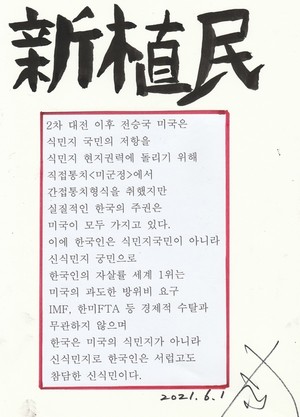 新植民
2차 대전 이후 전승국 미국은
식민지 국민의 저항을
식민지 현지권력에 돌리기 위해
직접통치<미군정>에서
간접통치형식을 취했지만
실질적인 한국의 주권은
미국이 모두 가지고 있다.
이에 한국인은 식민지국민이 아니라
신식민지 궁민으로
한국인의 자살률 세계 1위는
미국의 과도한 방위비 요구
IMF, 한미FTA 등 경제적 수탈과
무관하지 않으며
한국은 미국의 식민지가 아니라
신식민지로 한국인은 서럽고도
참담한 신식민이다.
2021.6.1